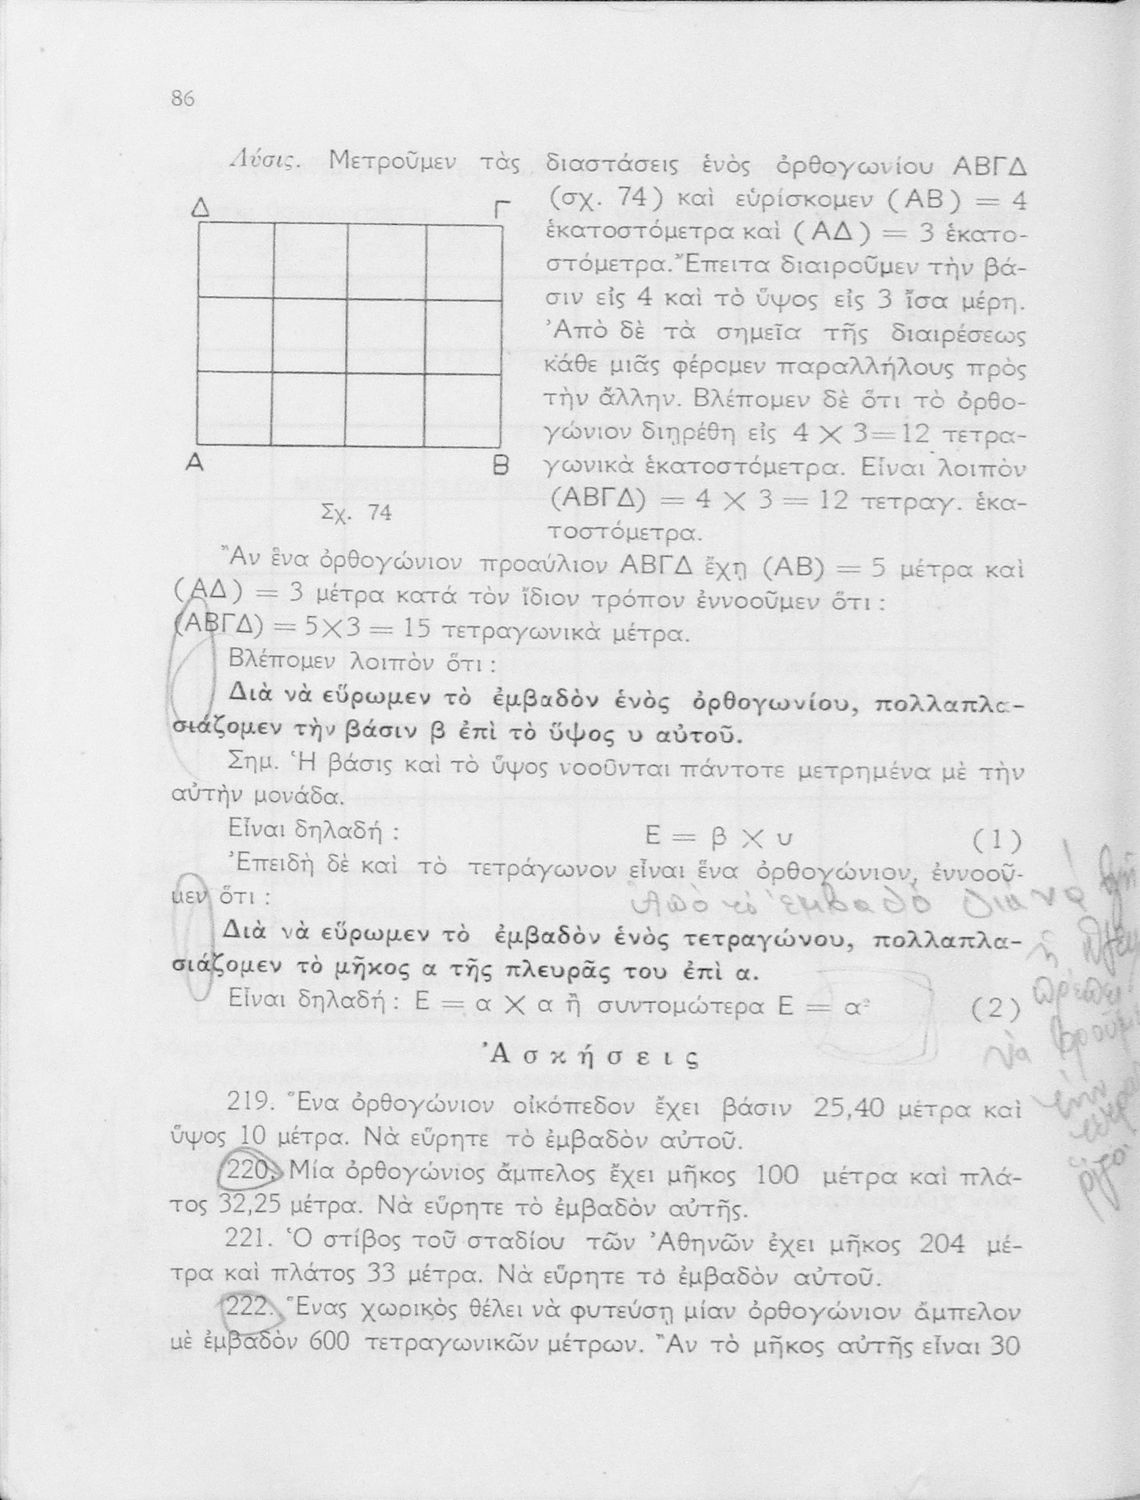 86
Λύσις. Μετροῦμεν τὰς διαστάσεις ἑνὸς ὀρθογωνίου ΑΒΓΔ
(σχ. 74) καὶ εὑρίσκομεν (ΑΒ) = 4
ἑκατοστόμετρα καὶ (ΑΔ) = 3 ἑκατο-
στόμετρα. Ἔπειτα διαιροῦμεν τὴν βά-
σιν εἰς 4 καὶ τὸ ὕψος εἰς 3 ἴσα μέρη.
Ἀπὸ δὲ τὰ σημεῖα τῆς διαιρέσεως
κάθε μιᾶς φέρομεν παραλλήλους πρὸς
τὴν ἄλλην. Βλέπομεν δὲ ὅτι τὸ ὀρθο-
γώνιον διῃρέθη εἰς 4 × 3=12 τετρα-
γωνικὰ ἑκατοστόμετρα. Εἶναι λοιπὸν
(ΑΒΓΔ) = 4 × 3 = 12 τετραγ. ἑκα-
τοστόμετρα.
Δ Γ
Α Β
Σχ. 74
Ἂν ἕνα ὀρθογώνιον προαύλιον ΑΒΓΔ ἔχῃ (ΑΒ) = 5 μέτρα καὶ
(ΑΔ) = 3 μέτρα κατά τὸν ἴδιον τρόπον ἐννοοῦμεν ὅτι :
(ΑΒΓΔ) = 5×3 = 15 τετραγωνικὰ μέτρα.
Βλέπομεν λοιπὸν ὅτι :
Διὰ νὰ εὕρωμεν τὸ ἐμβαδὸν ἑνὸς ὀρθογωνίου, πολλαπλα-
σιάζομεν τὴν βάσιν β ἐπὶ τὸ ὕψος υ αὐτοῦ.
Σημ. Ἡ βάσις καὶ τὸ ὕψος νοοῦνται πάντοτε μετρημένα μὲ τὴν
αὐτὴν μονάδα.
Εἶναι δηλαδή : Ε = β × υ (1)
Ἐπειδὴ δὲ καὶ τὸ τετράγωνον εἶναι ἕνα ὀρθογώνιον, ἐννοοῦ-
μεν ὅτι :
Ἀπὸ τὸ ἐμβαδὸ διὰ νὰ
Διὰ νὰ εὕρωμεν τὸ ἐμβαδὸν ἑνὸς τετραγώνου, πολλαπλα-
σιάζομεν τὸ μῆκος α τῆς πλευρᾶς του ἐπὶ α.
Εἶναι δηλαδή : Ε = α × α ἢ συντομώτερα Ε = α² (2)
πρέπει
νὰ βροῦμε
τὴν
Ἀσκήσεις
219. Ἕνα ὀρθογώνιον οἰκόπεδον ἔχει βάσιν 25,40 μέτρα καὶ
ὕψος 10 μέτρα. Νὰ εὕρητε τὸ ἐμβαδὸν αὐτοῦ.
220. Μία ὀρθογώνιος ἄμπελος ἔχει μῆκος 100 μέτρα καὶ πλά-
τος 32,25 μέτρα. Νὰ εὕρητε τὸ ἐμβαδὸν αὐτῆς.
221. Ὁ στίβος τοῦ σταδίου τῶν Ἀθηνῶν ἔχει μῆκος 204 μέ-
τρα καὶ πλάτος 33 μέτρα. Νὰ εὕρητε τὸ ἐμβαδὸν αὐτοῦ.
222. Ἕνας χωρικὸς θέλει νὰ φυτεύσῃ μίαν ὀρθογώνιον ἄμπελον
μὲ ἐμβαδὸν 600 τετραγωνικῶν μέτρων. Ἂν τὸ μῆκος αὐτῆς εἶναι 30